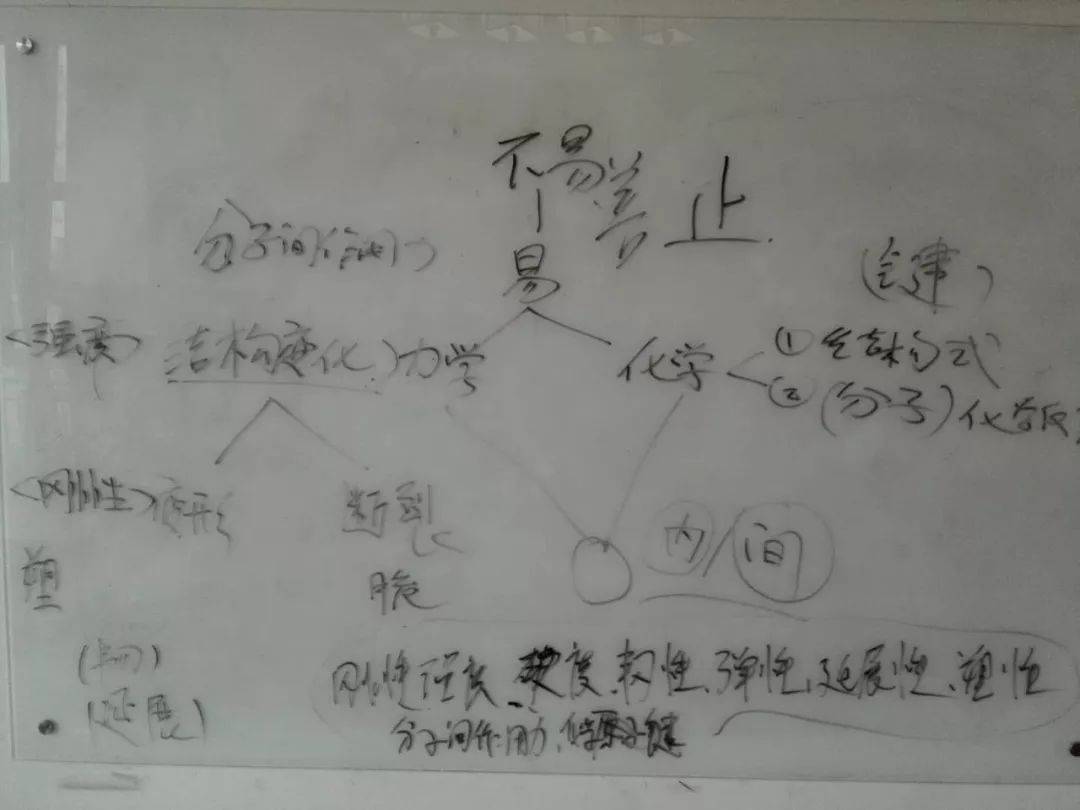 不易善止
易
分子间作用力
(键)
<强度> 结构变化) 力学
化学 < ① 结构式
② (分子) 化学反
<刚性> 变形
断裂
塑
脆
内/间
(韧)
(延展)
刚性 强度、硬度、韧性、弹性、延展性、塑性
分子间作用力、化学 键